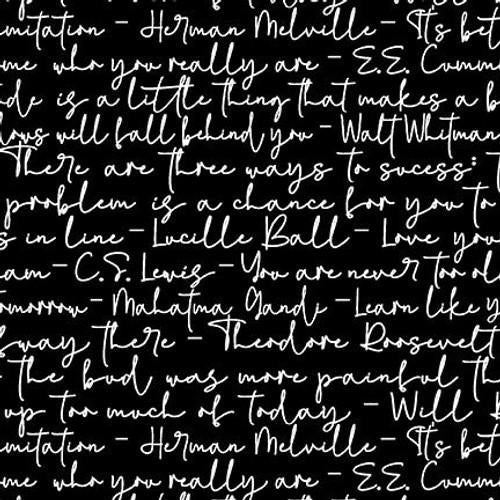 imitation - Herman Melville - It's bet
me who you really are - E.E. Cumm
de is a little thing that makes a b
dows will fall behind you - Walt Whitman
There are three ways to sucess: T
problem is a chance for you to
s in line - Lucille Ball - Love you
am - C.S. Lewis - You are never too ol
omorrow - Mahatma Gandi - Learn like y
fway there - Theodore Roosevelt
- The bud was more painful th
up too much of today - Will R
imitation - Herman Melville - It's bet
me who you really are - E.E. Cumm